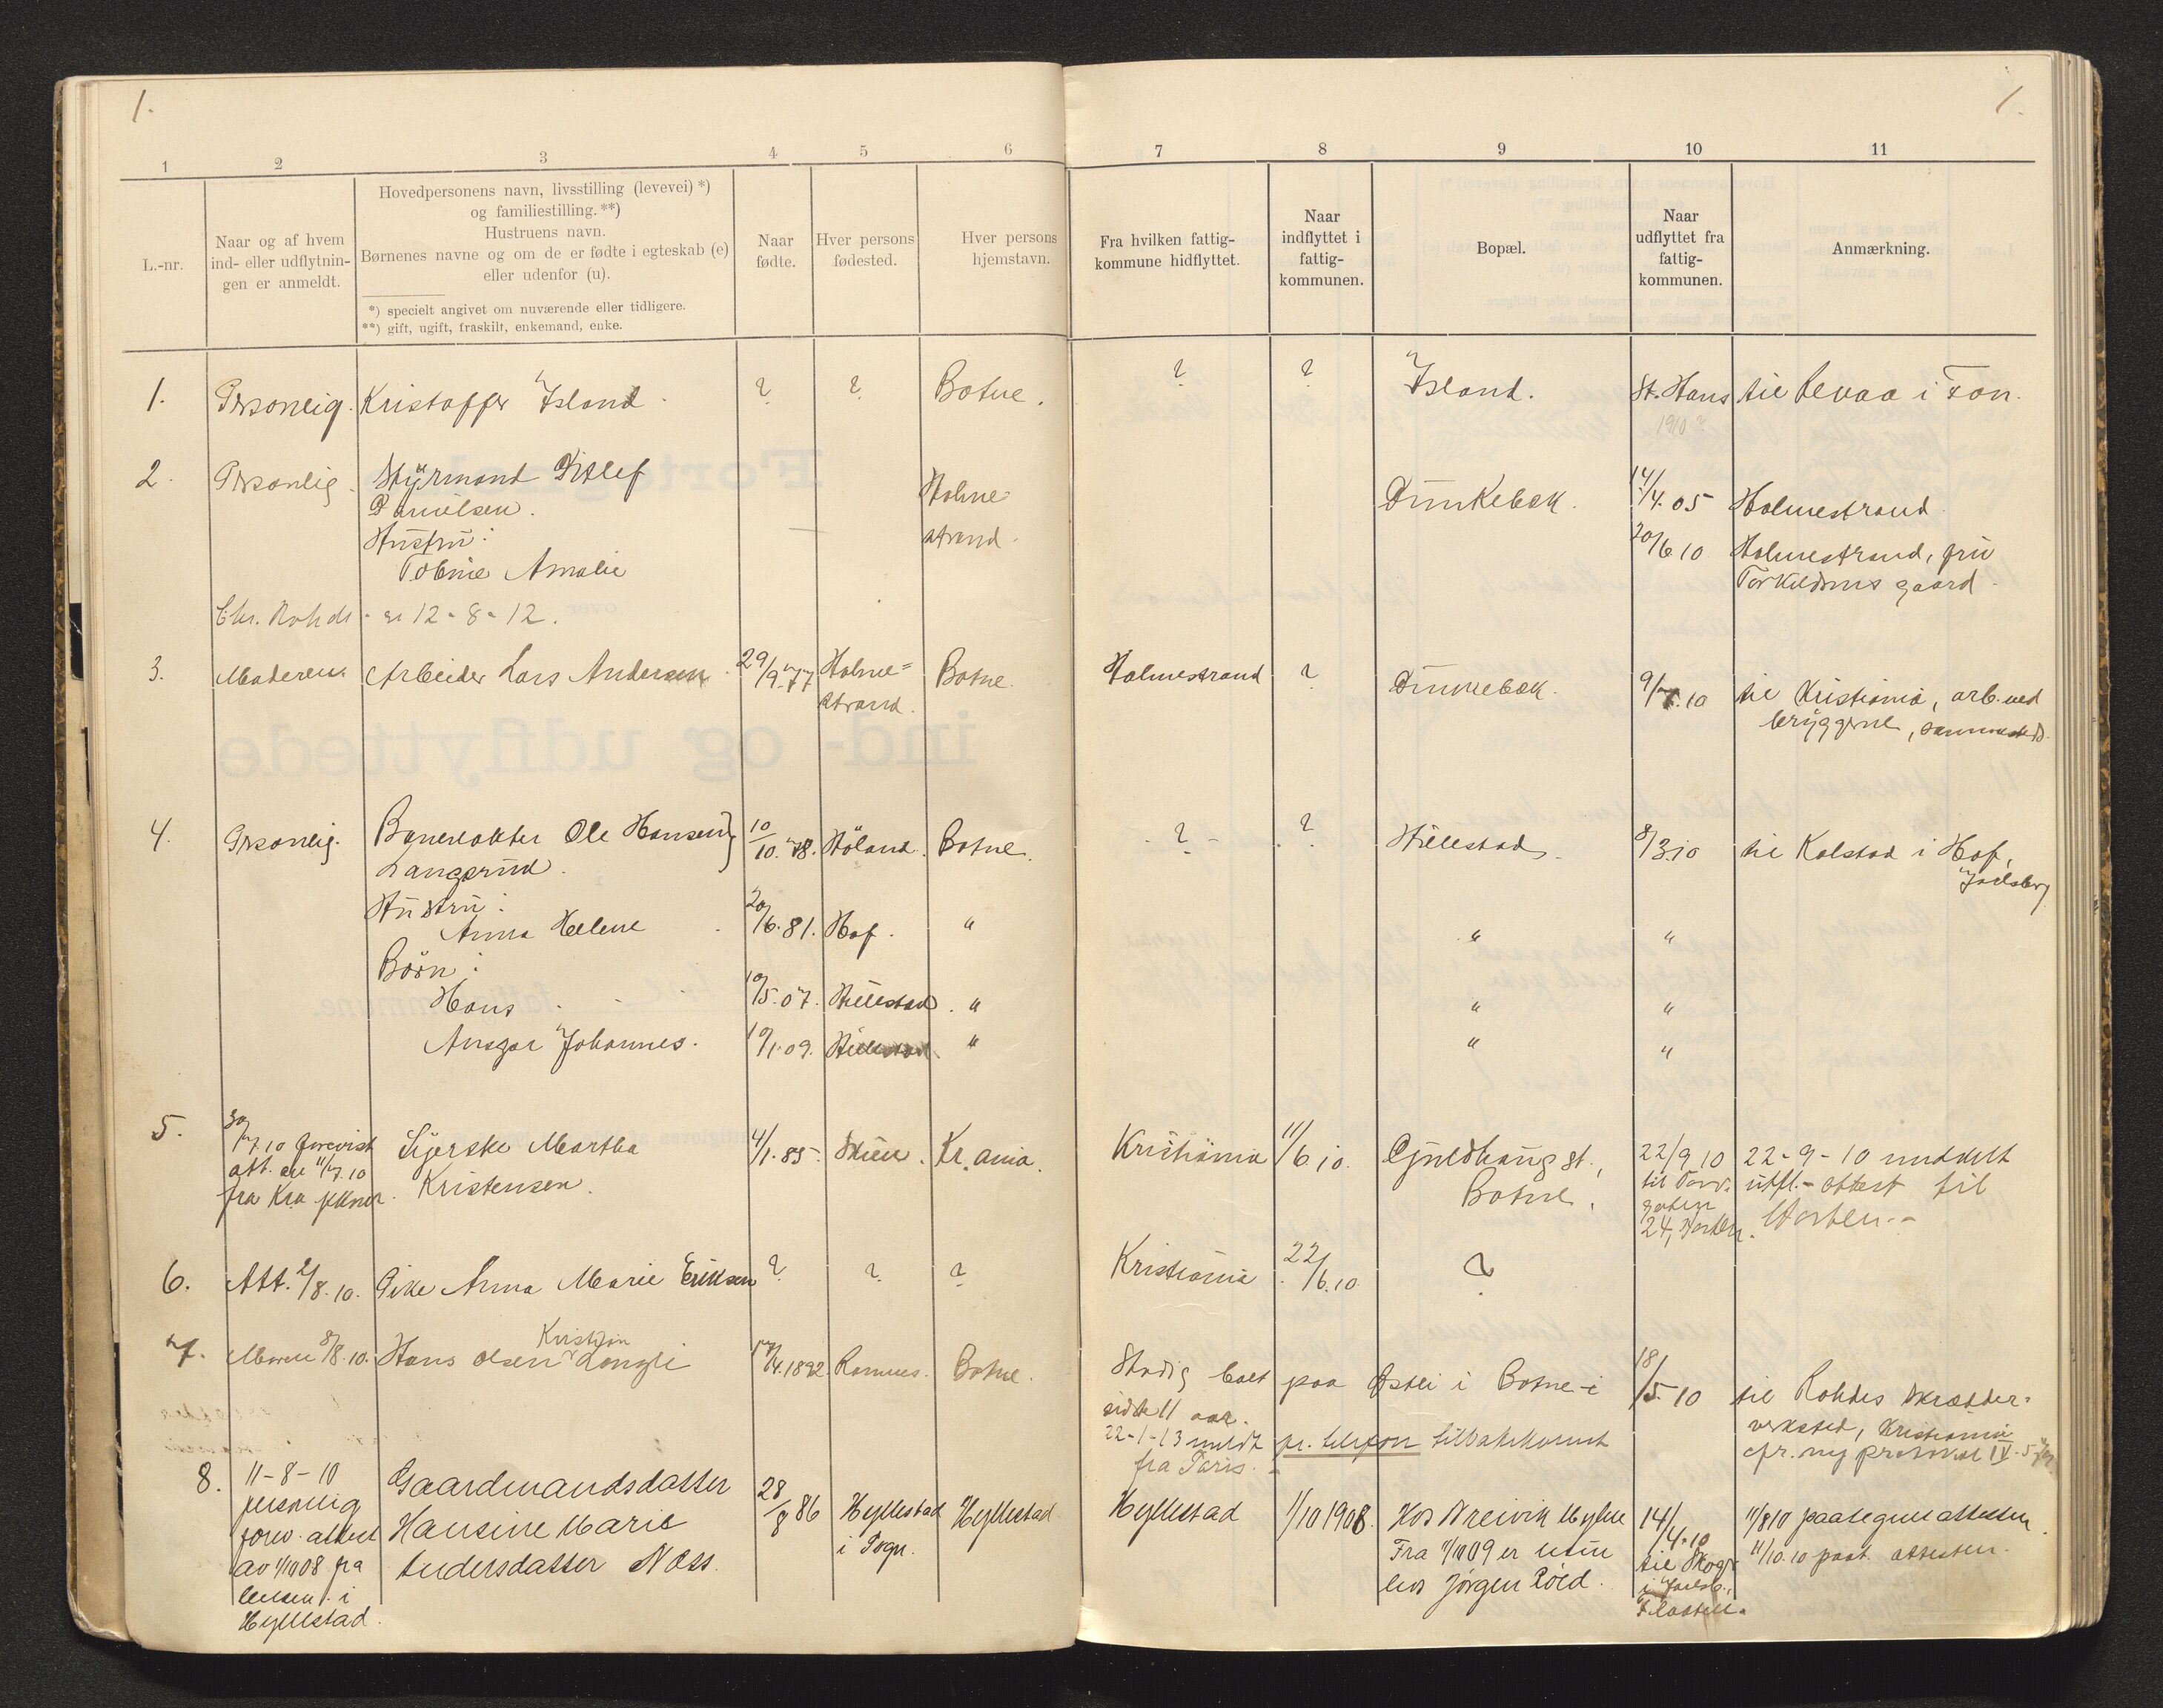 1.
1.
1 2 3 4 5 6 7 8 9 10 11
L.-nr.
Naar og af hvem
ind- eller udflytnin-
gen er anmeldt.
Hovedpersonens navn, livsstilling (levevei) *)
og familiestilling. **)
Hustruens navn.
Børnenes navne og om de er fødte i egteskab (e)
eller udenfor (u).
*) specielt angivet om nuværende eller tidligere.
**) gift, ugift, fraskilt, enkemand, enke.
Naar
fødte.
Hver persons
fødested.
Hver persons
hjemstavn.
Fra hvilken fattig-
kommune hidflyttet.
Naar
indflyttet i
fattig-
kommunen.
Bopæl.
Naar
udflyttet fra
fattig-
kommunen.
Anmærkning.
1. Personlig. Kristoffer Island ? ? Botne. ? ? Island. St. Hans til i
1910?
2. Personlig. Styrmand Ditlef
Danielsen.
Hustru:
Tobine Amalie
Holme
strand.
Dunkebæk.
14/4.05 Holmestrand
20/6 10 Holmestrand, fru
Torkildsens gaard.
Chr. Rohde - er 12-8-12.
3. Moderen. Arbeider Lars Andersen 29/9.77 Holme=
strand.
Botne. Holmestrand ? Dunkebæk. 9/7.10 til Kristiania, arb. ved
bryggerne, sammesteds.
4. Personlig. Banevokter Ole Hansen
Langerud.
10/10.78. Höland. Botne. - ? - ? Hillestad. 8/3.10 til Kolstad i Hof,
Jarlsberg
Hustru:
Anna Helene 20/6.81. Hof. " " "
Børn:
Hans 10/5.07. Hillestad. " " "
Ansgar Johannes. 19/1.09. Hillestad. " " "
5. 30/7.10 forevist
att. av 11/7.10
fra Kra
Syerske Martha
Kristensen.
4/1.85. Skien. Kr.ania. Kristiania 11/6.10. Gjuldhaug st.,
Botne.
22/9 10
til
gaten
24, Horten.
22-9-10 meddelt
utfl.-attest til
Horten.-
6. Att. 2/8.10. Pike Anna Marie Eriksen ? ? ? Kristiania 22/6.10 ?
7. Moren 8/8.10. Hans Olsen Kristian Langli 17/4.1892. Ramnes. Botne. Stadig boet paa Østli i Botne i
sidste 11 aar.
22-1-13 meldt pr. telefon tilbakekommet
fra Paris.
18/5.10 til Rohdes skrædder=
verksted, Kristiania
cfr. ny protokol IV.
8. 11-8-10
personlig
forev. attest
av 1/10 08 fra
lensm. i
Hyllestad.
Gaardmandsdatter
Hansine Marie
Andersdatter Næss.
28/8 86 Hyllestad
i Sogn.
Hyllestad Hyllestad 1/10 1908. Hos
Fra 1/10 09 er
hos Jørgen
14/4.10
til Skoger
i Jarlsb.,
11/8 10 paategnet attesten.
11/10.10 paat. attesten.